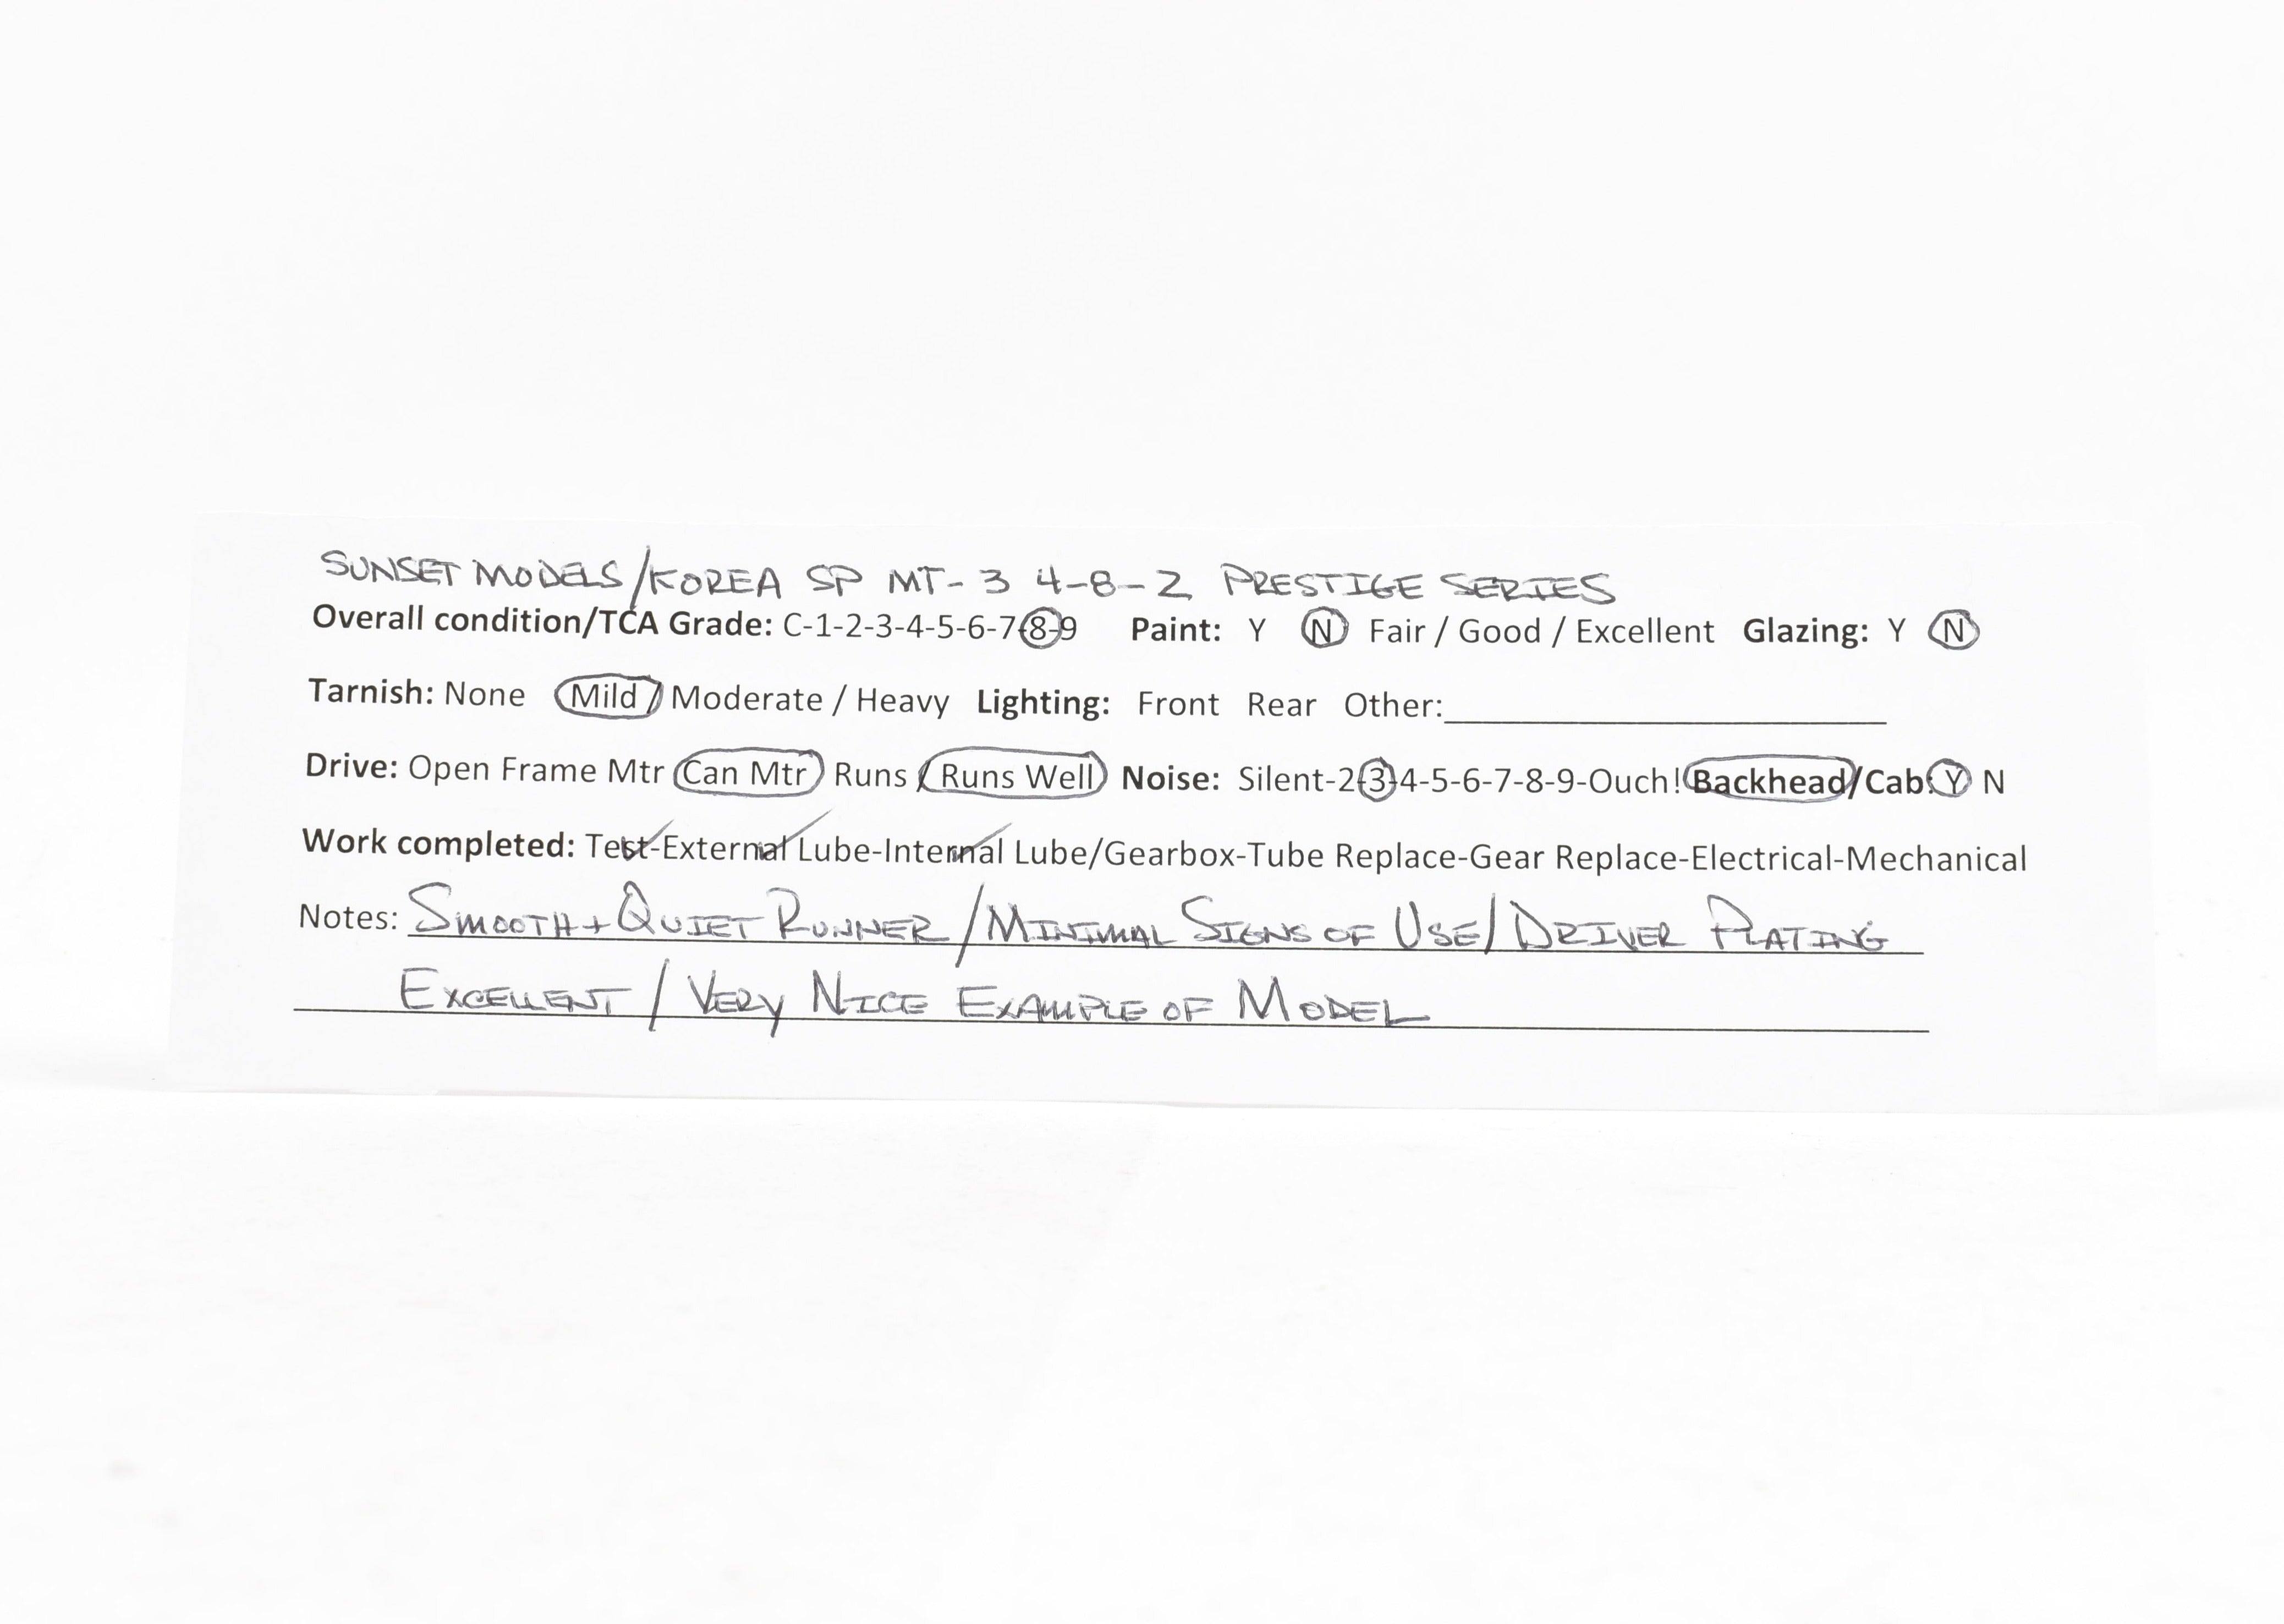 SUNSET MODELS/KOREA SP MT-3 4-8-2 PRESTIGE SERIES
Overall condition/TCA Grade: C-1-2-3-4-5-6-7-8-9 Paint: Y N Fair / Good / Excellent Glazing: Y N
Tarnish: None Mild / Moderate / Heavy Lighting: Front Rear Other:
Drive: Open Frame Mtr Can Mtr Runs / Runs Well Noise: Silent-2-3-4-5-6-7-8-9-Ouch! Backhead/Cab: Y N
Work completed: Test-External Lube-Internal Lube/Gearbox-Tube Replace-Gear Replace-Electrical-Mechanical
Notes: SMOOTH + QUIET RUNNER / MINIMAL SIGNS OF USE / DRIVER PLATING
EXCELLENT / VERY NICE EXAMPLE OF MODEL